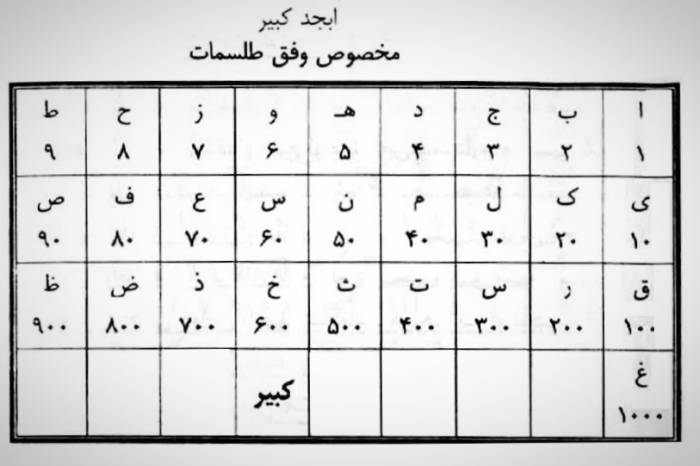 ابجد کبیر
مخصوص وفق طلسمات
ا ب ج د هـ و ز ح ط
۱ ۲ ۳ ۴ ۵ ۶ ۷ ۸ ۹
ی ک ل م ن س ع ف ص
۱۰ ۲۰ ۳۰ ۴۰ ۵۰ ۶۰ ۷۰ ۸۰ ۹۰
ق ر س ت ث خ ذ ض ظ
۱۰۰ ۲۰۰ ۳۰۰ ۴۰۰ ۵۰۰ ۶۰۰ ۷۰۰ ۸۰۰ ۹۰۰
غ کبیر
۱۰۰۰